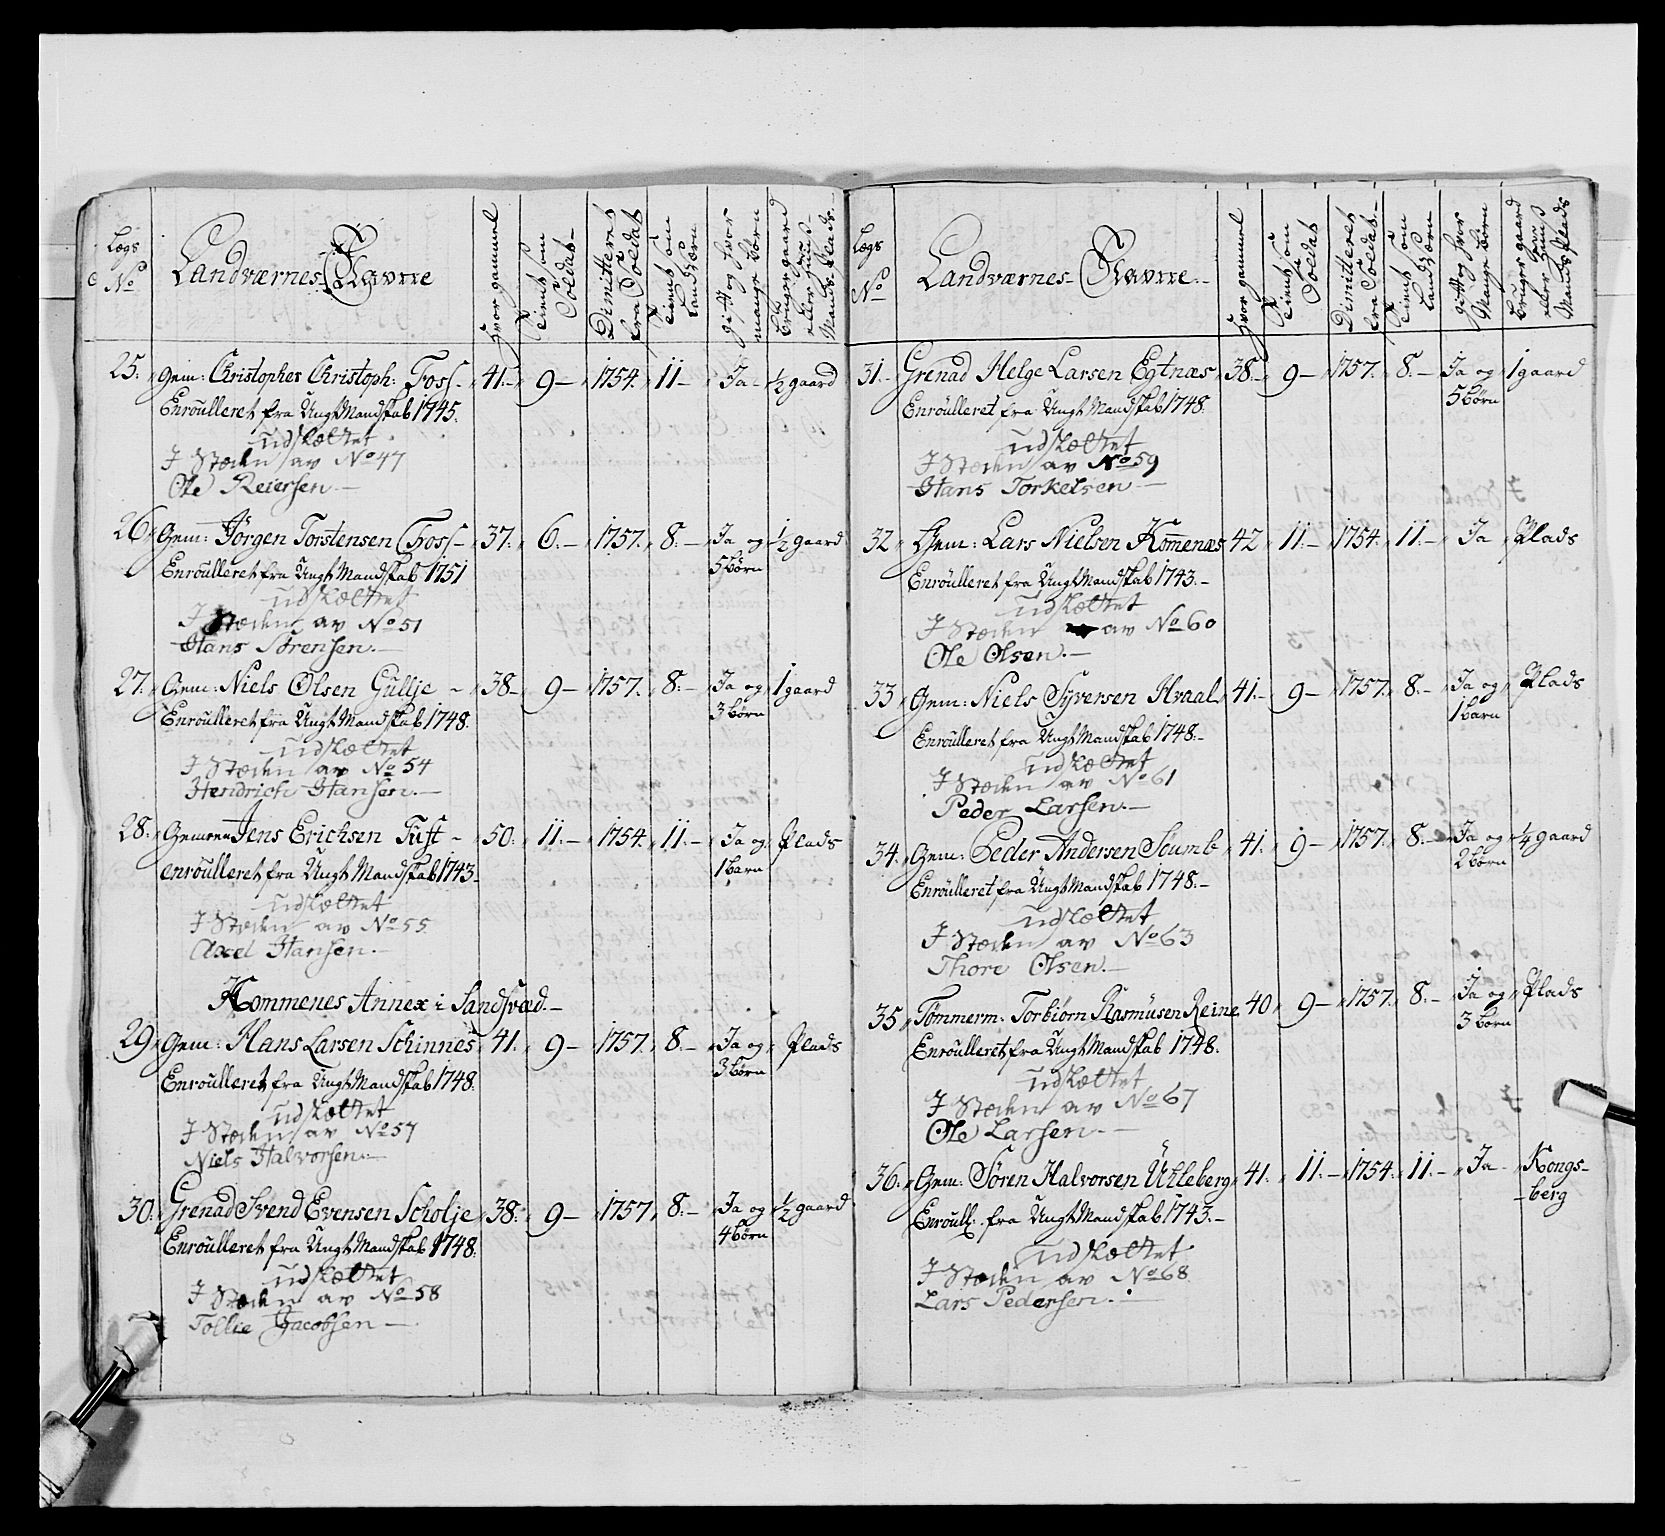 Lægs No
Landværnes Navne
Hvor gammel
Tient som Soldat
Dimitteret fra Soldat
Tient som Landværn
gift og hvor mange børn
Bruger gaard eller Huus-Mands Plads
25. Gem: Christopher Christoph: Foss 41. 9 1754. 11 Ja ½ gaard
Enroulleret fra Ungt Mandskab 1745.
udslættet
I Steden av No 47
Ole Reiersen
26 Gem: Jørgen Torstensen Foss 37. 6. 1757. 8. Ja og 5 børn ½ gaard
Enroulleret fra Ungt Mandskab 1751
udslættet
I Steden av No 51
Hans Sørensen
27. Gem: Niels Olsen Gullje 38 9 1757. 8. Ja og 3 børn 1 gaard
Enroulleret fra Ungt Mandskab 1748.
udslættet
I Steden av No 54
Hendrich Hansen
28. Gemeen Jens Erichsen Tuft 50. 11. 1754. 11 Ja og 1 barn Plads
enroulleret fra Ungt Mandskab 1743
udslættet
I Steden av No 55
Axel Hansen
Kommenes Annex i Sandsvæd
29 Gem: Hans Larsen Schinnes 41. 9 1757. 8. Ja og 3 børn Plads
Enroulleret fra Ungt Mandskab 1748.
udslættet
I Steden av No 57
Niels Halvorsen
30. Grenad Svend Evensen Scholje 38. 9 1757. 8. Ja og 4 børn ½ gaard
Enroulleret fra Ungt Mandskab 1748.
udslættet
I Steden av No 58
Tollie Jacobsen
Lægs No
Landværnes Navne
Hvor gammel
Tient som Soldat
Dimitteret fra Soldat
Tient som Landværn
gift og hvor Mange Børn
Bruger gaard eller Huus Mands Plads
31. Grenad Helge Larsen Egtnæs 38. 9 1757. 8. Ja og 5 børn 1 gaard
Enroulleret fra Ungt Mandskab 1748.
udslættet
I Steden av No 59
Hans Torkelsen
32 Gem: Lars Nielsen Komenæs 42 11. 1754. 11. Ja Plads
Enroulleret fra Ungt Mandskab 1743.
udslættet
I Steden av No 60
Ole Olsen
33 Gem: Niels Syversen Hvaal 41. 9 1757. 8. Ja og 1 barn Plads
Enroulleret fra Ungt Mandskab 1748.
udslættet
I Steden av No 61
Peder Larsen
34. Gem: Peder Andersen Scumb 41. 9 1757. 8. Ja og 2 børn ¼ gaard
Enroulleret fra Ungt Mandskab 1748.
udslættet
I Steden av No 63
Thore Olsen
35 Tømmerm. Torbiørn Rasmusen Reine 40 9 1757. 8. Ja og 3 børn Plads
Enroulleret fra Ungt Mandskab 1748.
udslættet
I Steden av No 67
Ole Larsen
36. Gem: Søren Halvorsen Ulleberg 41. 11. 1754. 11. Ja Kongs-
berg
Enroull. fra Ungt Mandskab 1743.
udslættet
I Steden av No 68
Lars Pedersen